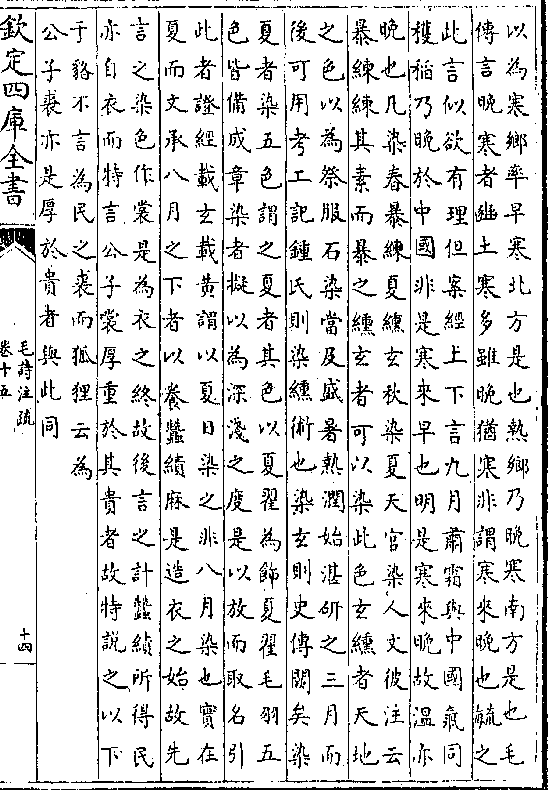 以為寒鄉率早寒北方是也熱鄉乃晚寒南方是也毛
傳言晚寒者豳土寒多雖晚猶寒非謂寒來晚也毓之
此言似欲有理但案經上下言九月肅霜與中國氣同
穫稻乃晚於中國非是寒來早也明是寒來晚故溫亦
晚也凡染春暴練夏纁玄秋染夏天官染人文彼注云
暴練練其素而暴之纁玄者可以染此色玄纁者天地
之色以為祭服石染當及盛暑熱潤始湛研之三月而
後可用考工記鍾氏則染纁術也染玄則史傳闕矣染
夏者染五色謂之夏者其色以夏翟為飾夏翟毛羽五
色皆備成章染者擬以為深淺之度是以放而取名引
此者證經載玄載黃謂以夏日染之非八月染也實在
夏而文承八月之下者以養蠶績麻是造衣之始故先
言之染色作裳是為衣之終故後言之計蠶績所得民
亦自衣而特言公子裳厚重於其貴者故特說之以下
于貉不言為民之裘而狐狸云為
公子裘亦是厚於貴者與此同
欽定四庫全書
毛詩注疏
卷十五
十四